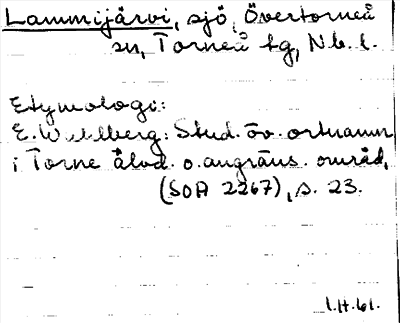 Lammijärvi, sjö, Övertorneå
sn, Torneå tg, N.b. l.
Etymologi:
E. Wahlberg: Stud. öv. ortnamn
i Torne älvd. o. angräns. områd.
(SOA 2267), s. 23.
1.H.61.